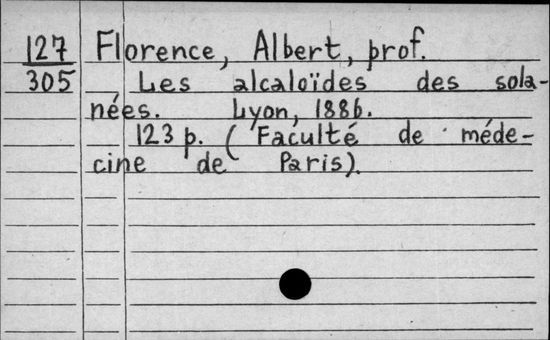 127 Florence, Albert, prof.
305 Les alcaloïdes des sola-
nées. Lyon, 1886.
123 p. (Faculté de méde-
cine de Paris).